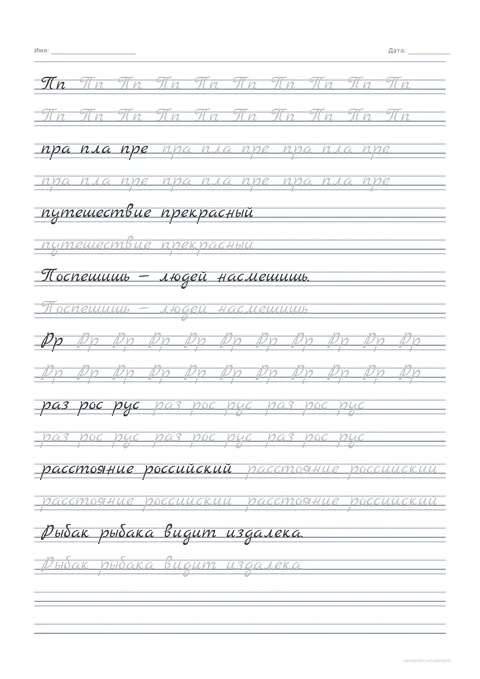 Имя: Дата:
Пп Пп Пп Пп Пп Пп Пп Пп Пп Пп
Пп Пп Пп Пп Пп Пп Пп Пп Пп Пп
пра пла пре пра пла пре пра пла пре
пра пла пре пра пла пре пра пла пре
путешествие прекрасный
путешествие прекрасный
Поспешишь — людей насмешишь.
Поспешишь — людей насмешишь
Рр Рр Рр Рр Рр Рр Рр Рр Рр Рр Рр
Рр Рр Рр Рр Рр Рр Рр Рр Рр Рр Рр
раз рос рус раз рос рус раз рос рус
раз рос рус раз рос рус раз рос рус
расстояние российский расстояние российский
расстояние российский расстояние российский
Рыбак рыбака видит издалека.
Рыбак рыбака видит издалека